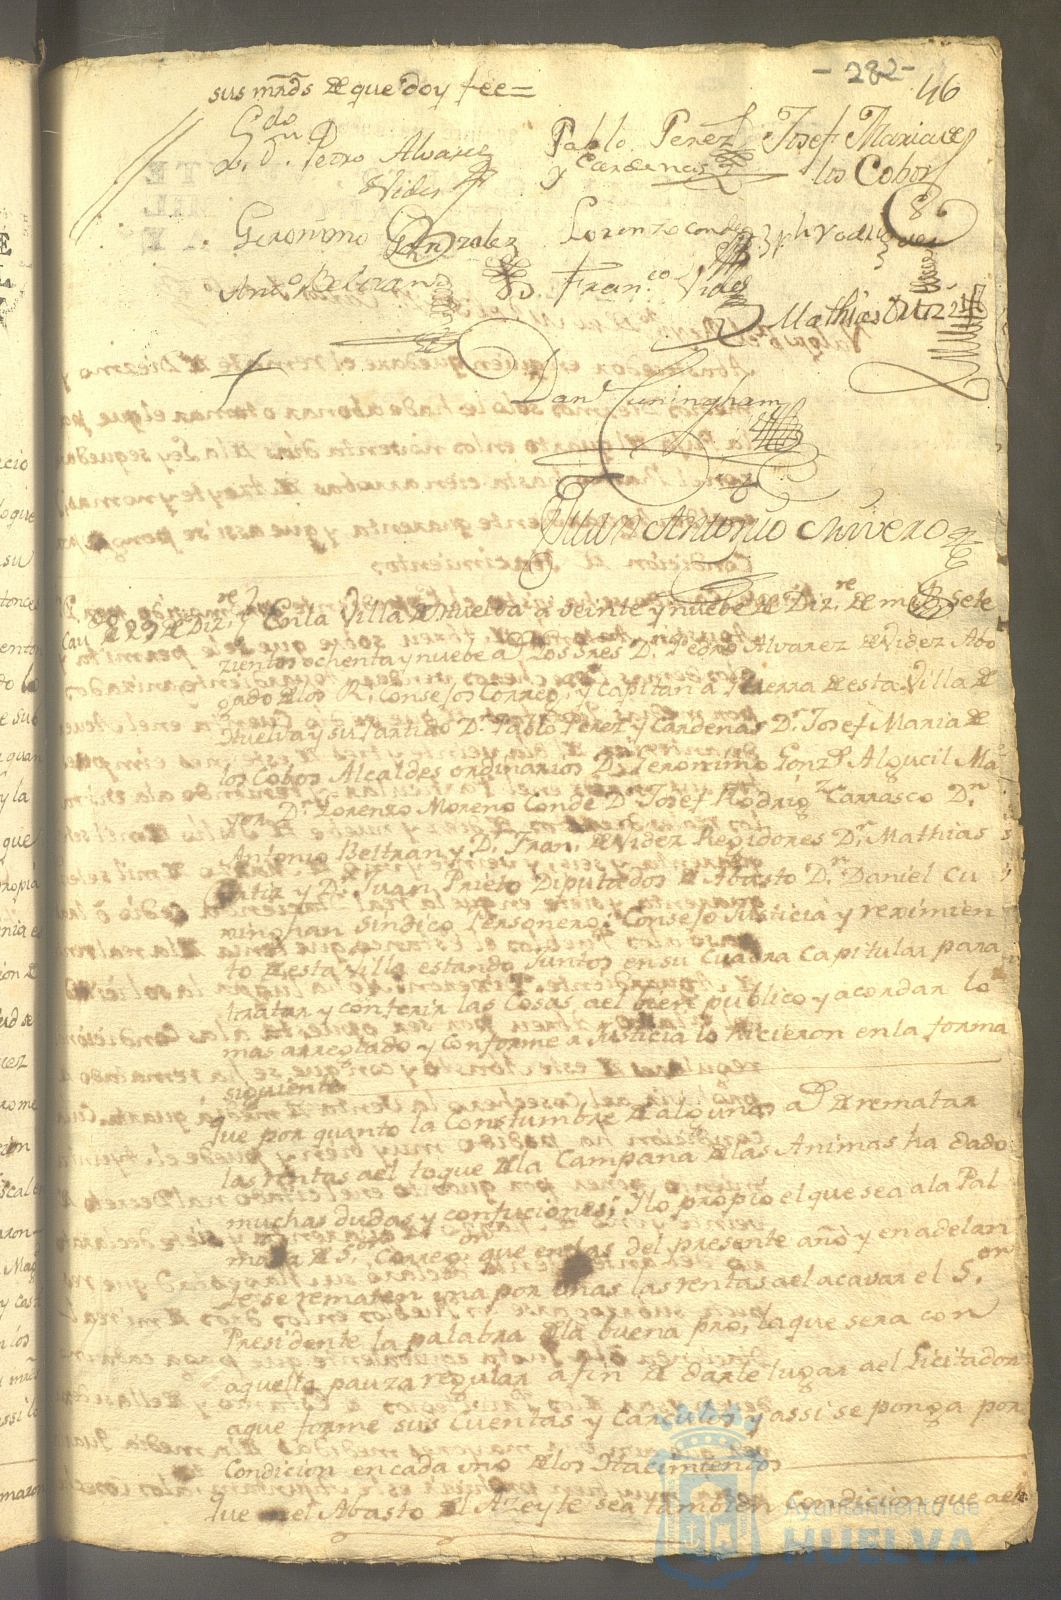 - 282 -
46
sus mrds. de que doy fee =
Lzdo. Dn. Pedro Alvarez
Videz
Pablo Perez
y Cardenas
Josef Maria de
los Cobos
Geronimo Gonzalez
Lorenzo Conde
Antto. Beltran
Franco. Videz
Mathias Ortiz
Danl. Cuningham
Juan Antonio Nivero
Cav. de 29 de Dizre.
En la Villa de Huelva a veinte y nuebe de Dizre. de mil sete
zientos ochenta y nuebe as. Los Sres. Dn. Pedro Alvarez de Videz Abo
gado de los Rs. Consejos Correxr. y Capitan a Guerra de esta Villa de
Huelva y su Partido Dn. Pablo Perez y Cardenas Dn. Josef Maria de
los Cobos Alcaldes ordinarios Dn. Geronimo Gonzz. Algucil Ma
yor Dn. Lorenzo Moreno Conde Dn. Josef Rodrigz. Carrasco Dn.
Antonio Beltran y Dn. Fran. de Videz Regidores Dn. Mathias
Ortiz y Dn. Juan Prieto Diputados de Abasto Dn. Daniel Cu
ninghan sindico Personero; Consejo Justicia y reximien
to de esta Villa estando Juntos en su Quadra Capitular para
tratar y conferir las Cosas del bien publico y acordar lo
mas arreglado y Conforme a Justicia lo hicieron en la forma
siguiente
Que por quanto la Constumbre de algunos as. de rematar
las rentas ael toque de la Campana de las Animas ha dado
muchas dudas y confuciones; Ylo propio el que sea ala Pal
mada de Sor. Correxor. que en las del presente año y en adelan
te se rematen una por unas las rentas ael acavar el Sor.
Presidente la palabra de la buena pro, la que sera con
aquella pauza regular a fin de darle lugar ael Licitador
aque forme sus Cuentas y Carculos y assi se ponga por
Condicion en cada uno de los Hacimientos
Que en el Abasto de Azeyte sea tambien Condicion que ael
Ayuntamiento de
HUELVA